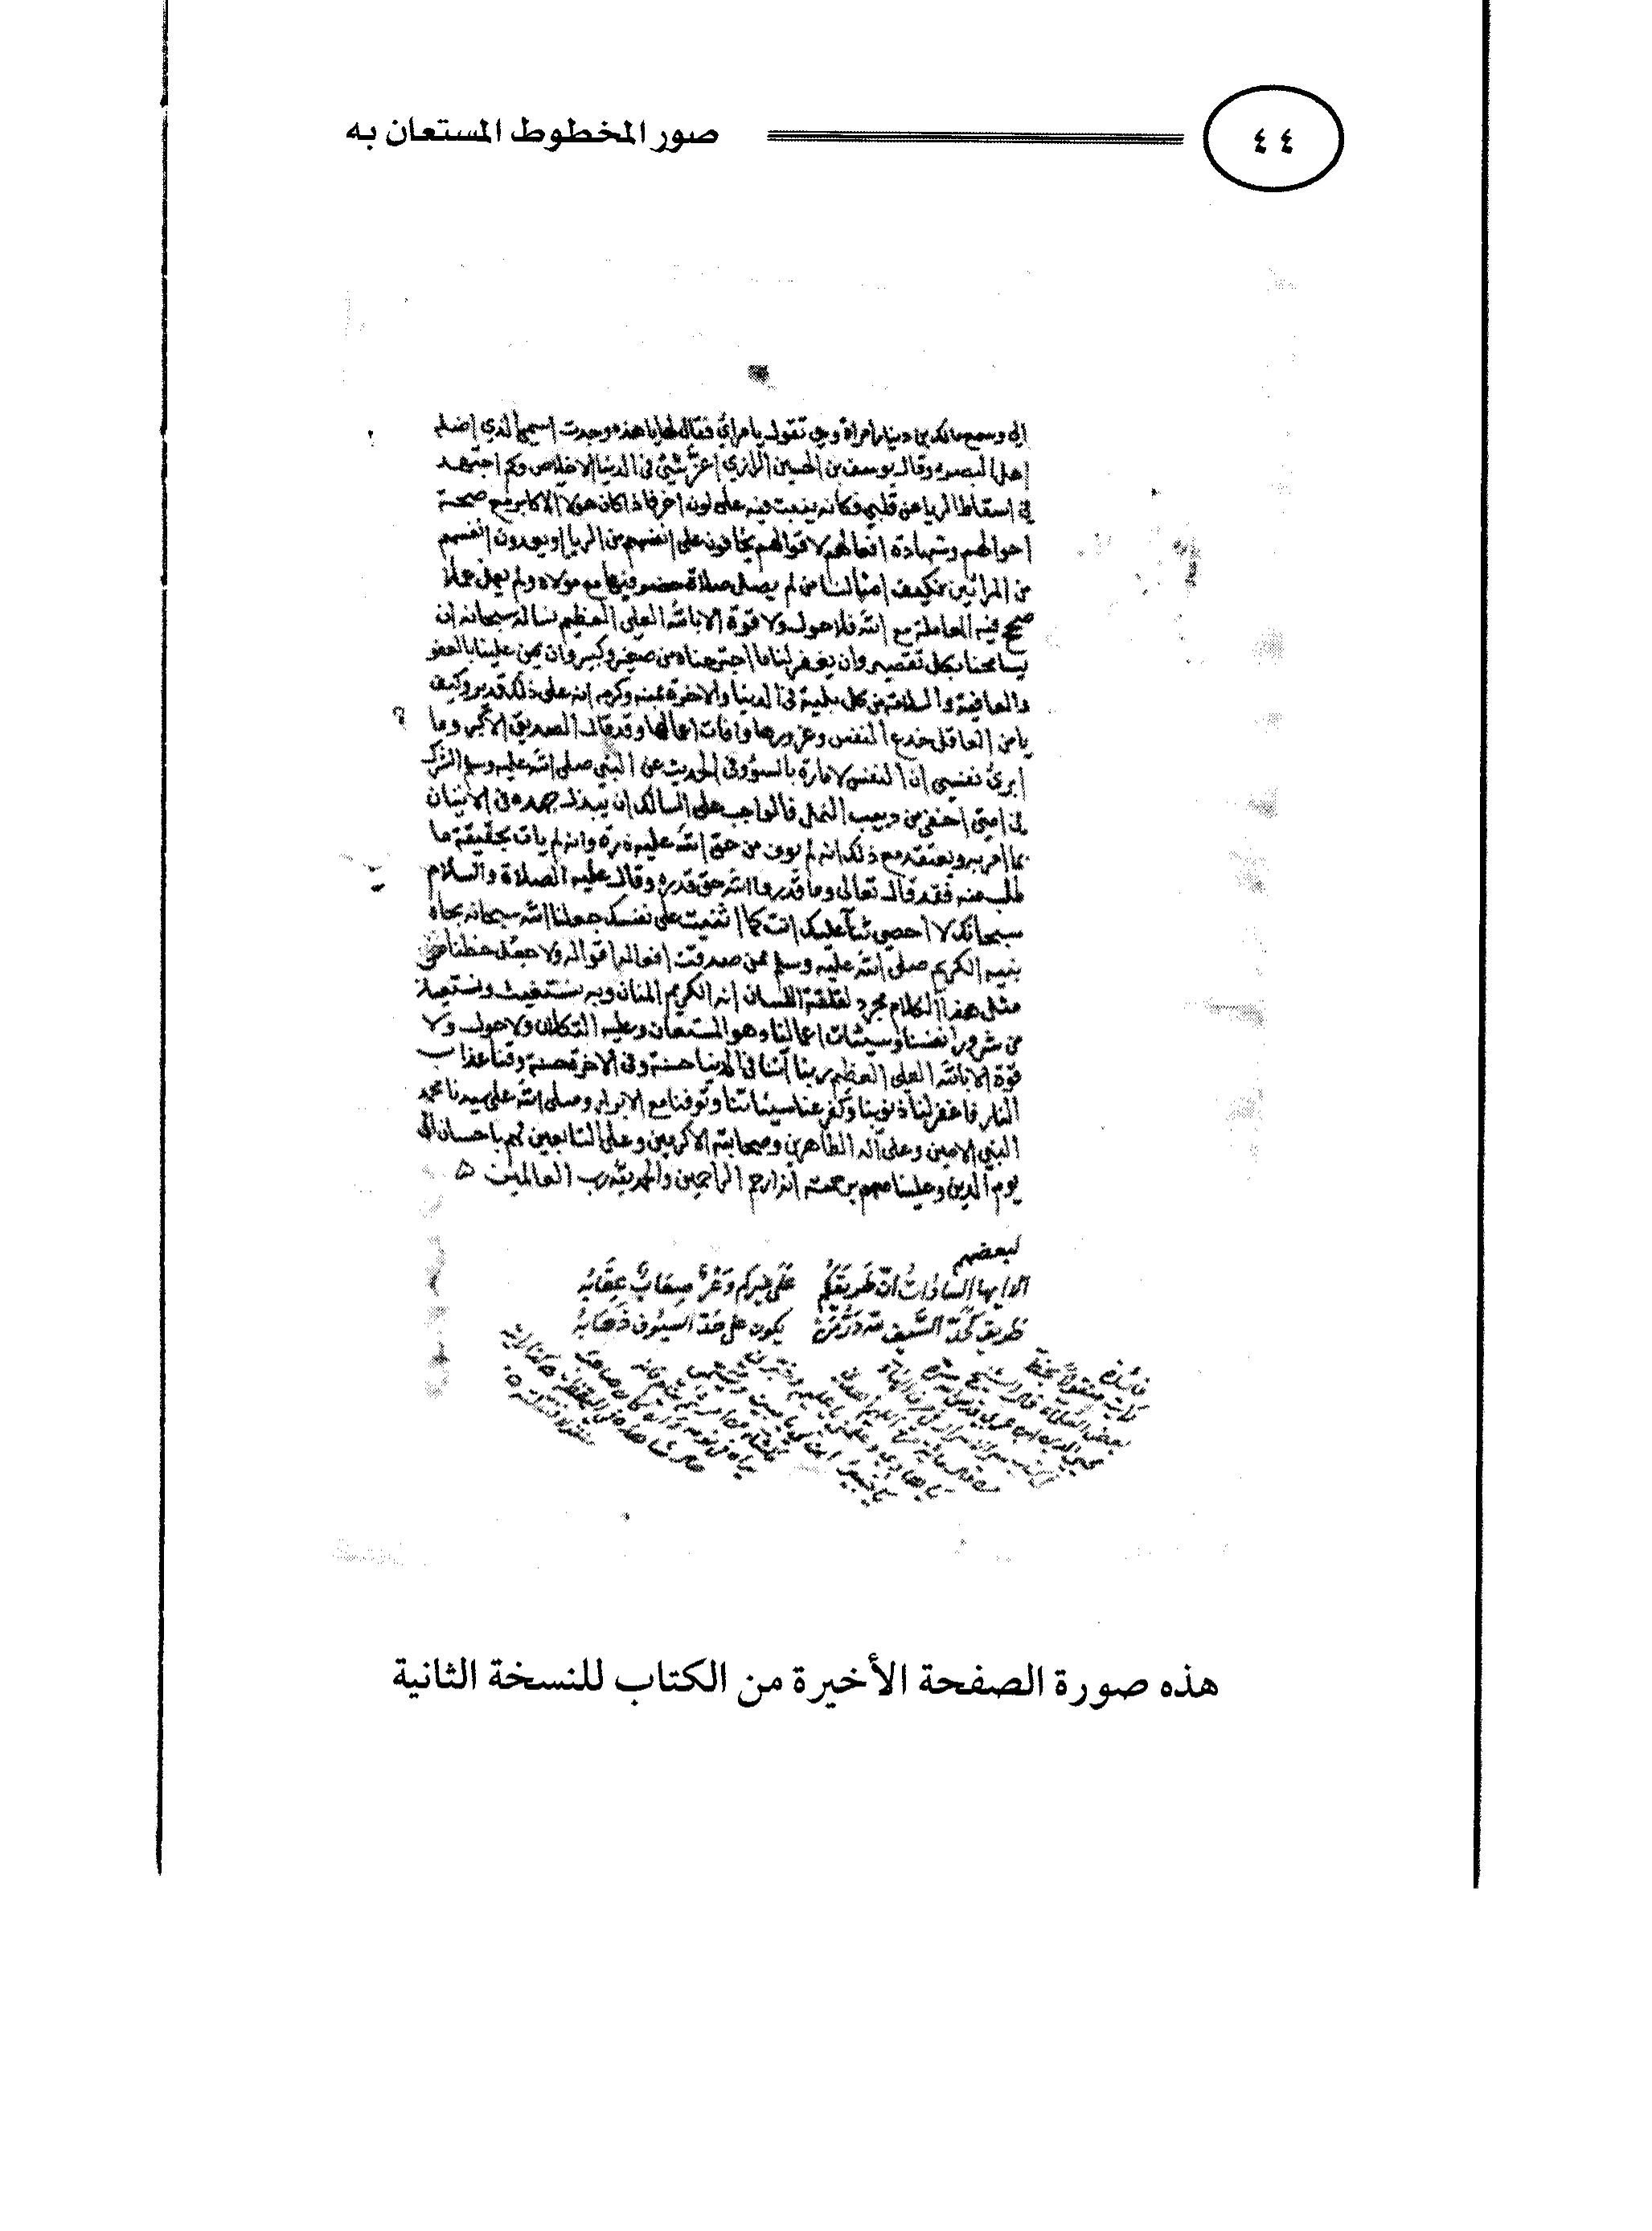 ٤٤
صور المخطوط المستعان به
الي وسمع مالك بن دينار امراة وهي تقول يا مرائي فقال لها يا هذه وجدت اسمي الذي اضله
اهل البصره وقال يوسف بن الحسين الرازي اعزّ شئ في الدنيا الاخلاص وكم اجتهد
في اسقاط الريا عن قلبي فكأنه ينبت فيه على لون اخر فاذا كان هولا الاكابر مع صحة
احوالهم وشهادة افعالهم لاقوالهم يخافون على انفسهم من الريا ويعدون انفسهم
من المرائين فكيف امثالنا من لم يصلى صلاة حضر فيها مع مولاه ولم يعمل عملا
صحح فيه المعاملة مع الله فلا حول ولا قوة الا بالله العلي العظيم نساله سبحانه ان
يسامحنا بكل تقصير وان يغفر لنا ما اجترحناه من صغير وكبير وان يمن علينا بالعفو
والعافية والسلامة من كل بلية في الدنيا والاخرة بمنه وكرمه انه على ذلك قدير وكيف
يامن العاقل خدع النفس وغرورها وافات اعمالها وقد قال الصديق الاكبر وما
ابرئ نفسي ان النفس لامارة بالسوء وفي الحديث عن النبي صلى الله عليه وسلم الشرك
في امتي اخفى من دبيب النمل فالواجب على السالك ان يبذل جهده في الاتيان
بما امر به ويعتقد مع ذلك انه لم يوف من حق الله عليه ذرة وانه لم يات بحقيقة ما
طلب منه فقد قال تعالى وما قدروا الله حق قدره وقال عليه الصلاة والسلام
سبحانك لا احصي ثناً عليك انت كما اثنيت على نفسك جعلنا الله سبحانه بجاه
نبيه الكريم صلى الله عليه وسلم ممن صدقت افعاله اقواله ولا جعل حظنا من
مثل هذا الكلام مجرد لقلقة اللسان انه الكريم المنان وبه نستغيث ونستعيذ
من شرور انفسنا وسيئات اعمالنا وهو المستعان وعليه التكلان ولا حول ولا
قوة الا بالله العلي العظيم ربنا آتنا في الدنيا حسنة وفي الاخرة حسنة وقنا عذاب
النار فاغفر لنا ذنوبنا وكفر عنا سيئاتنا وتوفنا مع الابرار وصلى الله على سيدنا محمد
النبي الامين وعلى آله الطاهرين وصحابته الاكرمين وعلى التابعين لهم باحسان الى
يوم الدين وعلينا معهم برحمته انه ارحم الراحمين والحمد لله رب العالمين ه
لبعضهم
الا ايها السادات ان طريقكم على غيركم وعر صعاب عقابه
طريق كحد السيف لله در من يكون على حد السيوف ذهابه
فائدة
هذه صورة الصفحة الأخيرة من الكتاب للنسخة الثانية